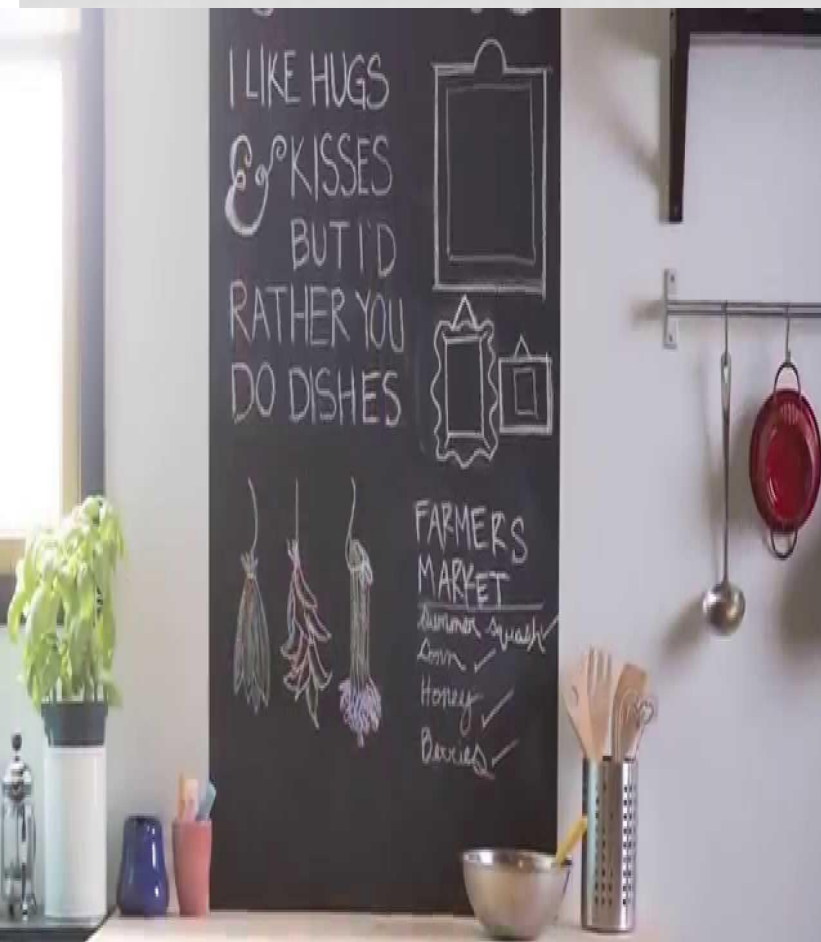 I LIKE HUGS
& KISSES
BUT I'D
RATHER YOU
DO DISHES
FARMERS
MARKET
Summer squash
Corn
Honey
Berries